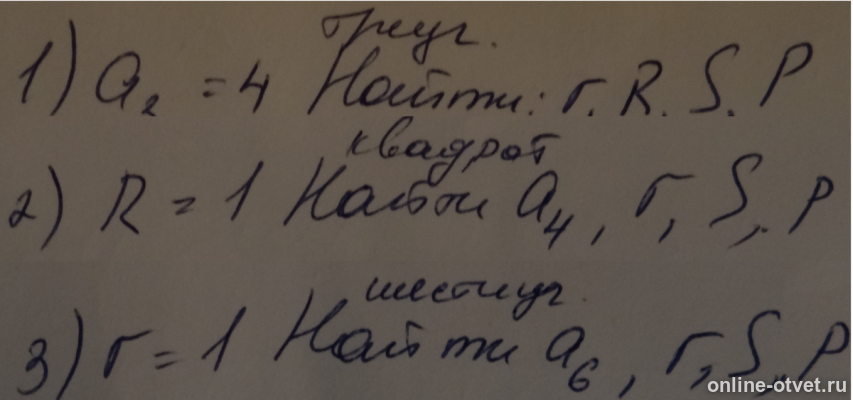 треуг.
1) a₂ = 4 Найти: r. R. S. P
квадрат
2) R = 1 Найти a₄, r, S, P
шестиуг.
3) r = 1 Найти a₆, r, S, P
online-otvet.ru